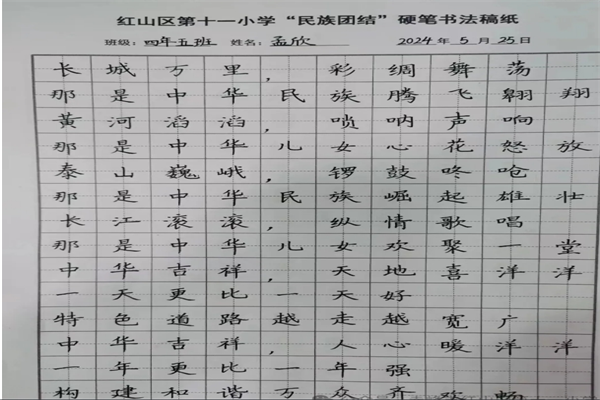 红山区第十一小学“民族团结”硬笔书法稿纸
班级：四年五班 姓名：孟欣 2024年5月25日
长城万里，彩绸舞荡
那是中华民族腾飞翱翔
黄河滔滔，唢呐声响
那是中华儿女心花怒放
泰山巍峨，锣鼓咚呛
那是中华民族崛起雄壮
长江滚滚，纵情歌唱
那是中华儿女欢聚一堂
中华吉祥，天地喜洋洋
一天更比一天好
特色道路越走越宽广
中华吉祥，人心暖洋洋
一年更比一年强
构建和谐万众齐欢畅